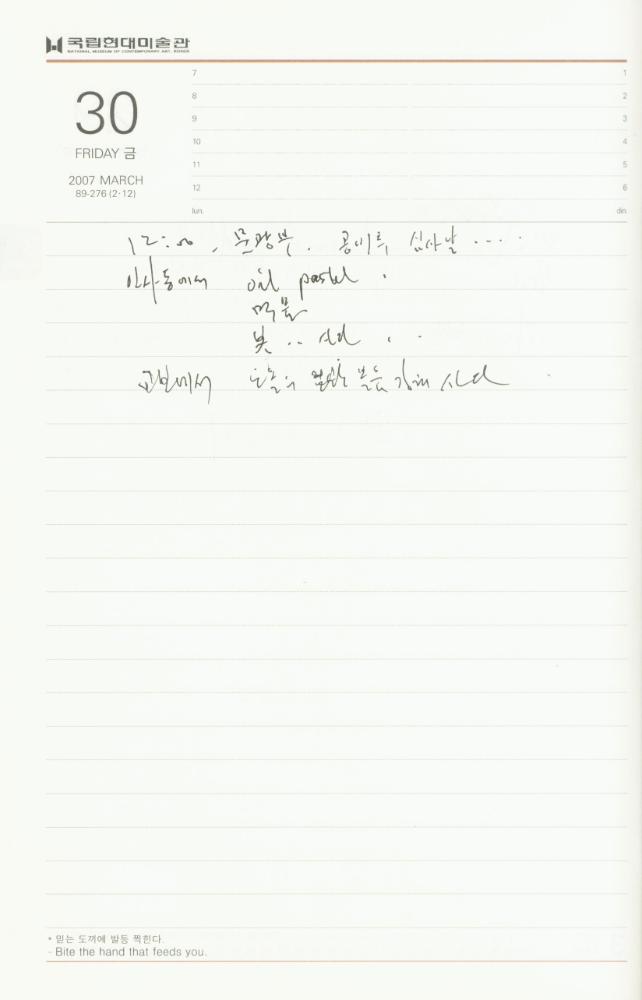 국립현대미술관
NATIONAL MUSEUM OF CONTEMPORARY ART, KOREA
30
FRIDAY 금
2007 MARCH
89-276 (2·12)
7
8
9
10
11
12
lun.
1
2
3
4
5
6
din.
12:00, 문광부. 심사날 ....
인사동에서 oil pastel .
먹물
붓 .. 사다 . .
교보에서 사다 .
* 믿는 도끼에 발등 찍힌다.
- Bite the hand that feeds you.